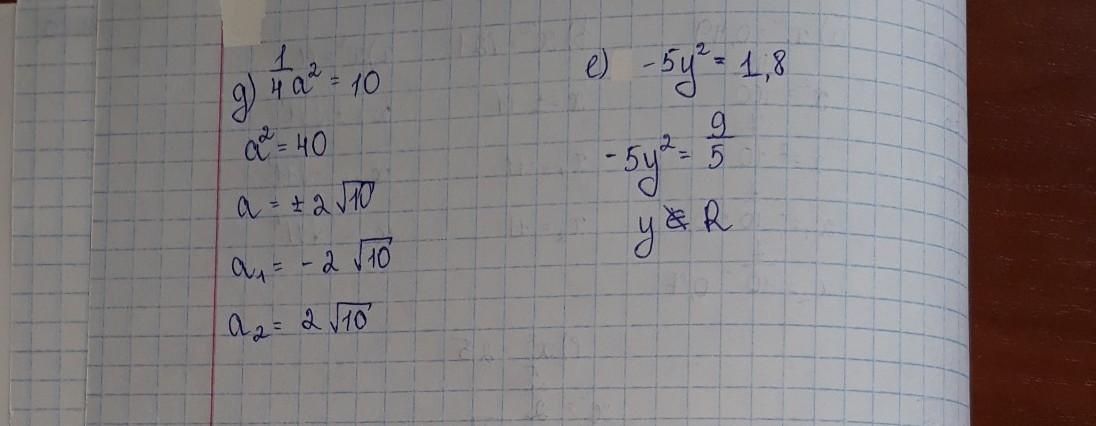 д) 1/4 a² = 10
a² = 40
a = ± 2√10
a₁ = - 2√10
a₂ = 2√10
е) -5y² = 1,8
-5y² = 9/5
y ∉ R